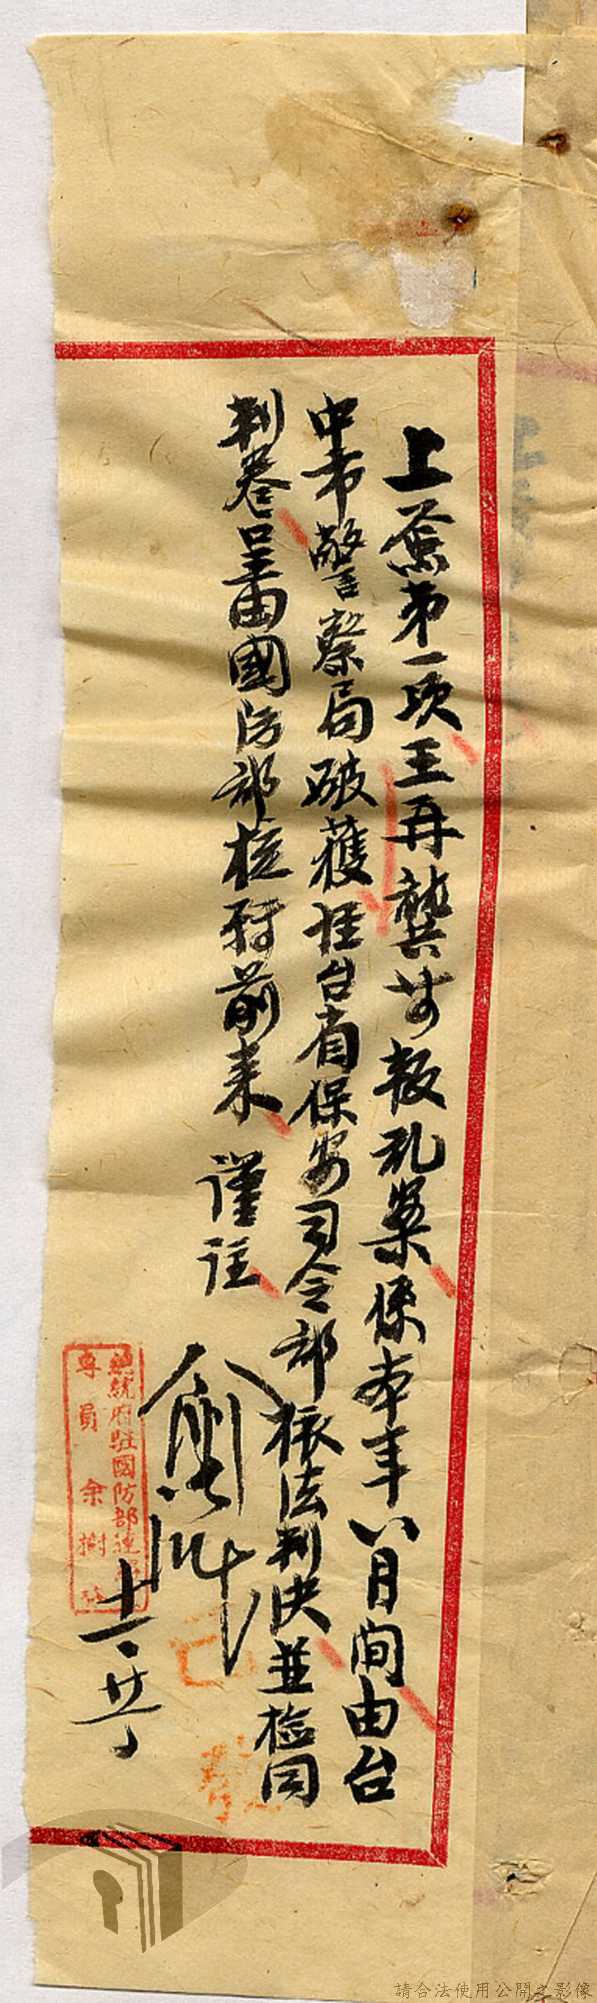 上簽第一項王再龔等叛亂案係本年八月間由台
中市警察局破獲經台省保安司令部依法判決並檢同
判卷呈由國防部核轉前來 謹註
總統府駐國防部連
專員余樹
十一、廿、
請合法使用公開之影像